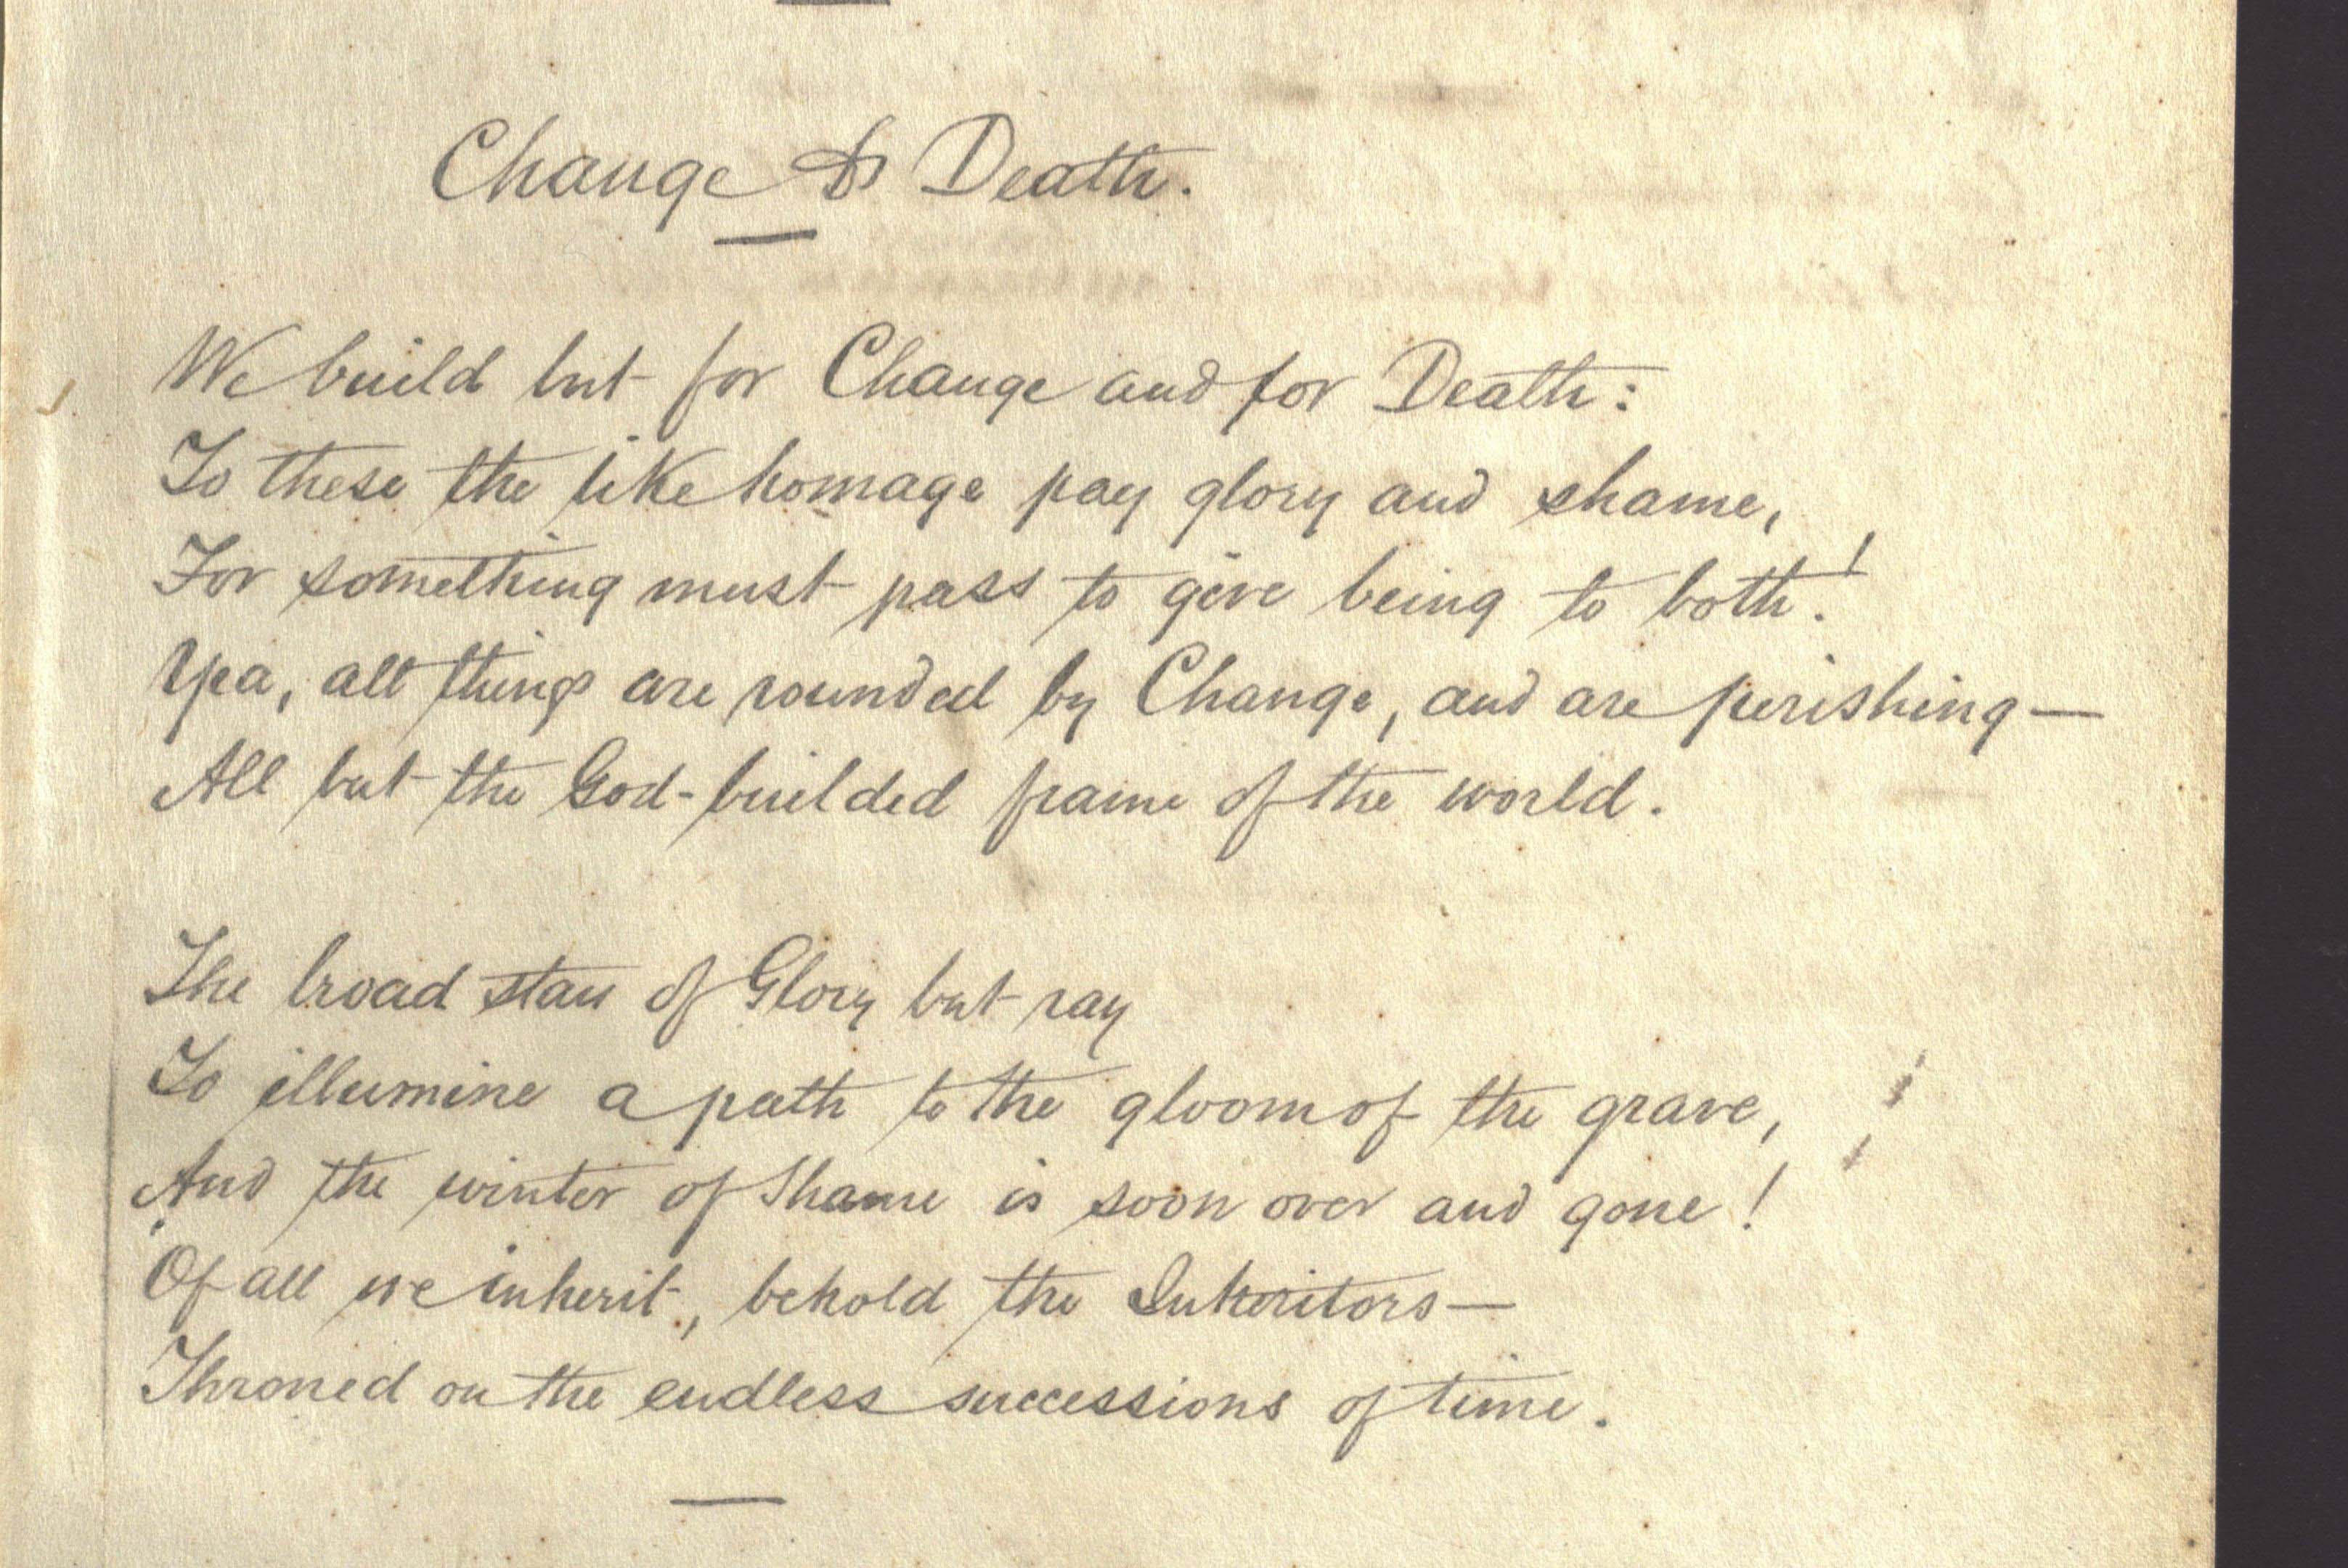 Change & Death.
We build but for Change and for Death:
To these the like homage pay glory and shame,
For something must pass to give being to both!
Yea, all things are rounded by Change, and are perishing—
All but the God-builded frame of the world.
The broad stars of Glory but ray
To illumine a path to the gloom of the grave,
And the winter of Shame is soon over and gone!
Of all we inherit, behold the Inheritors—
Throned on the endless successions of time.